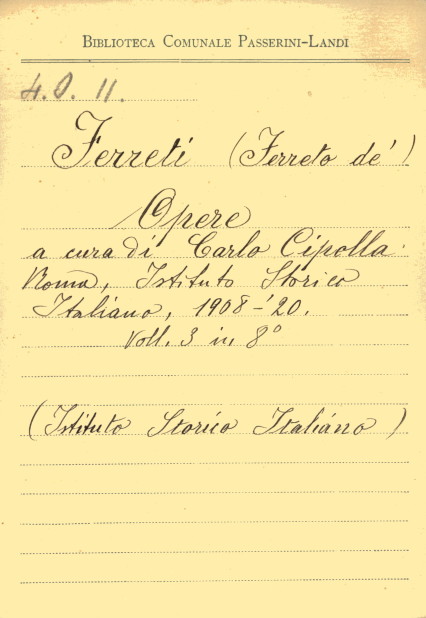 BIBLIOTECA COMUNALE PASSERINI-LANDI
4.O. 11.
Ferreti (Ferreto de')
Opere
a cura di Carlo Cipolla.
Roma, Istituto Storico
Italiano, 1908-'20.
Voll. 3 in 8°
(Istituto Storico Italiano)